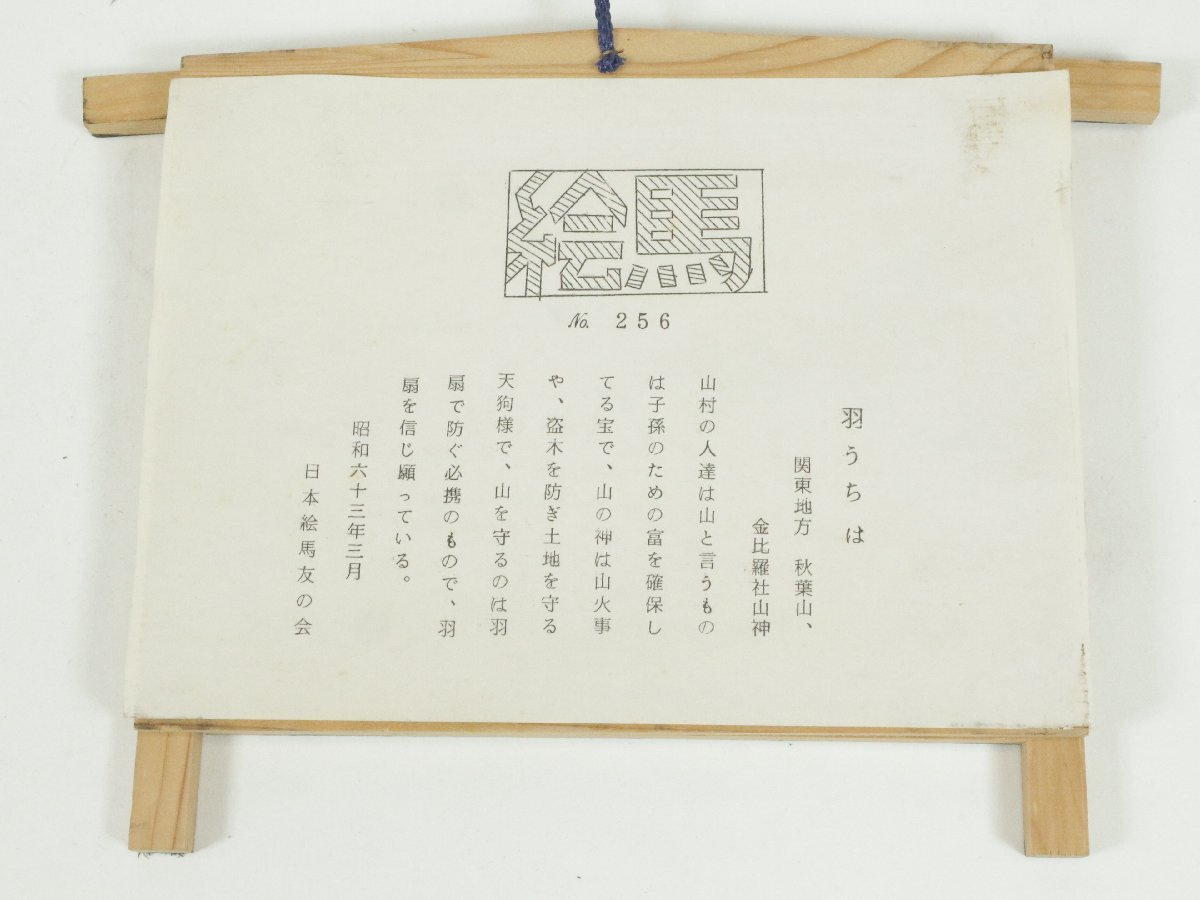 絵馬
No. 256
羽うちは
関東地方　秋葉山、
金比羅社山神
山村の人達は山と言うもの
は子孫のための富を確保し
てる宝で、山の神は山火事
や、盗木を防ぎ土地を守る
天狗様で、山を守るのは羽
扇で防ぐ必携のもので、羽
扇を信じ願っている。
昭和六十三年三月
日本絵馬友の会